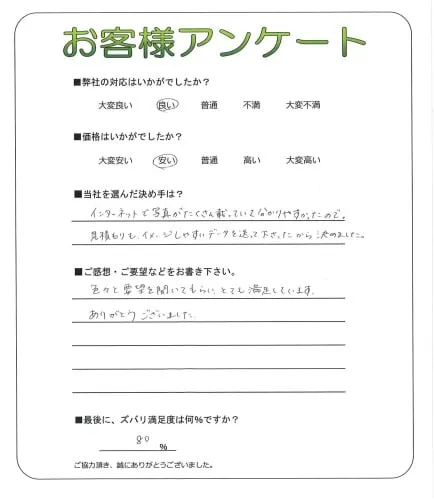 お客様アンケート
■弊社の対応はいかがでしたか？
大変良い 良い 普通 不満 大変不満
■価格はいかがでしたか？
大変安い 安い 普通 高い 大変高い
■当社を選んだ決め手は？
インターネットで写真がたくさん載っていて分かりやすかったので。
見積もりも、イメージしやすいデータを送って下さったから決めました。
■ご感想・ご要望などをお書き下さい。
色々と要望を聞いてもらい、とても満足しています。
ありがとうございました。
■最後に、ズバリ満足度は何％ですか？
80 %
ご協力頂き、誠にありがとうございました。